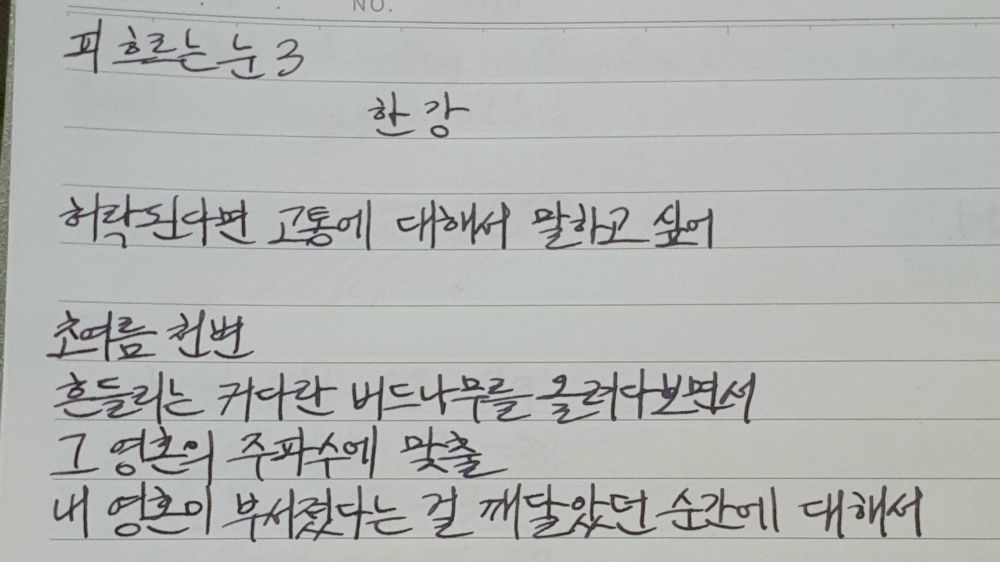 NO.
피 흐르는 눈 3
한 강
허락된다면 고통에 대해서 말하고 싶어
초여름 천변
흔들리는 커다란 버드나무를 올려다보면서
그 영혼의 주파수에 맞출
내 영혼이 부서졌다는 걸 깨달았던 순간에 대해서